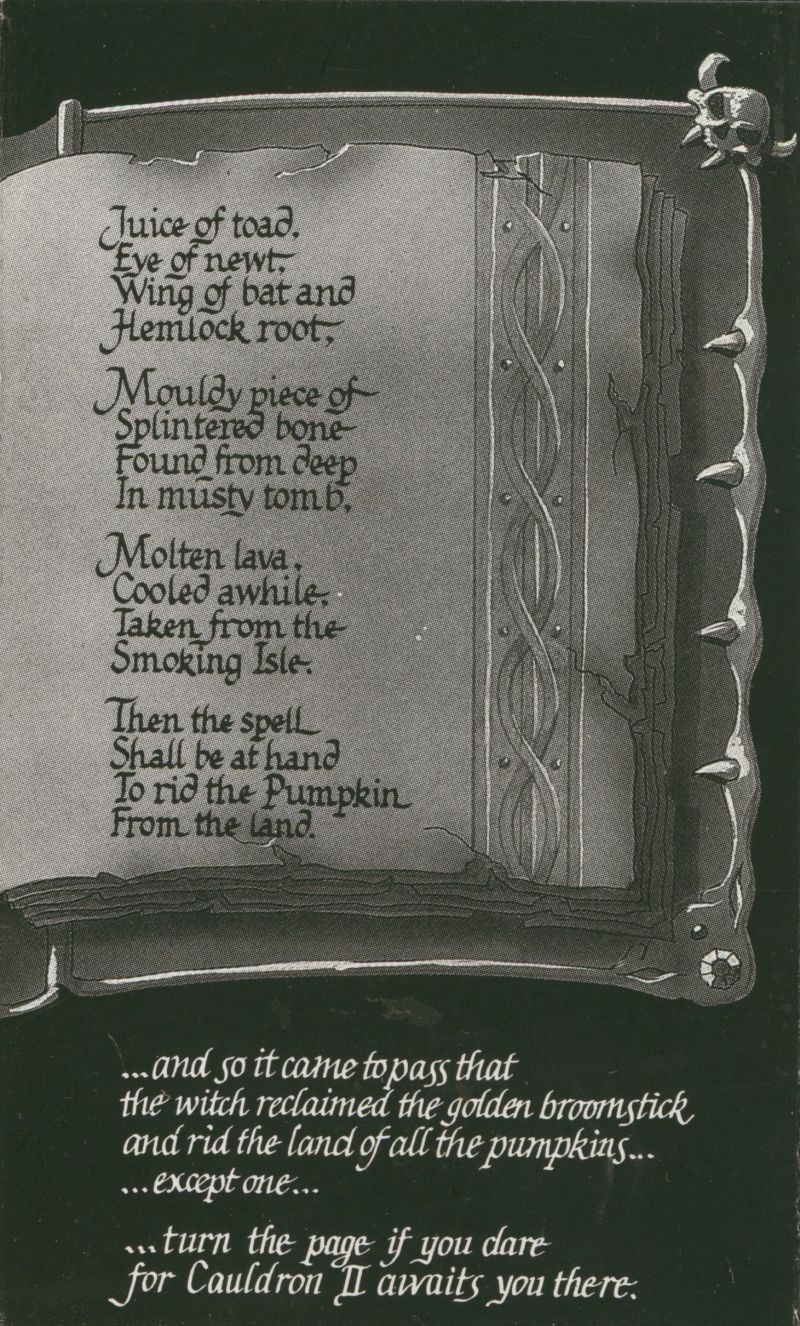 Juice of toad,
Eye of newt,
Wing of bat and
Hemlock root,
Mouldy piece of
Splintered bone
Found from deep
In musty tomb,
Molten lava,
Cooled awhile,
Taken from the
Smoking Isle.
Then the spell
Shall be at hand
To rid the Pumpkin
From the land.
...and so it came to pass that
the witch reclaimed the golden broomstick
and rid the land of all the pumpkins...
...except one...
...turn the page if you dare
for Cauldron II awaits you there.